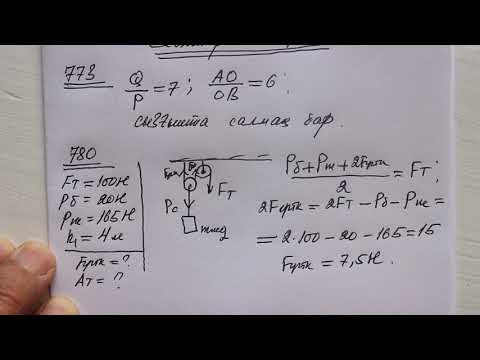 773 Q/P = 7 ; AO/OB = 6 ;
сызғышта салмақ бар.
780
Fт = 100Н
Pб = 20Н
Pж = 165Н
h₁ = 4 м
Fүйк = ?
Aт = ?
Fүйк
Fт
Pс
(Pб + Pж + 2Fүйк)/2 = Fт ;
2Fүйк = 2Fт − Pб − Pж =
= 2·100 − 20 − 165 = 15
Fүйк = 7,5Н.